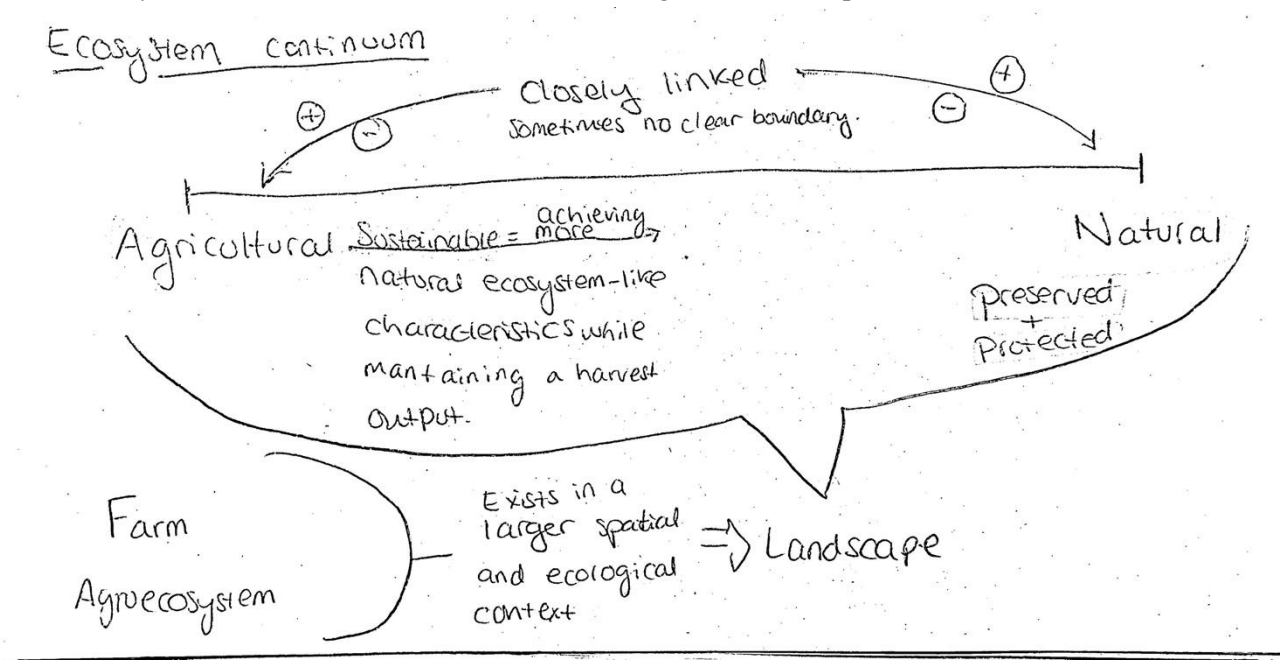 Ecosystem continuum
Closely linked
Sometimes no clear boundary.
+
-
-
+
Agricultural
Sustainable = achieving
more
natural ecosystem-like
characteristics while
mantaining a harvest
output.
Natural
preserved
+
Protected
Farm
Agroecosystem
Exists in a
larger spatial
and ecological
context
⇒ Landscape